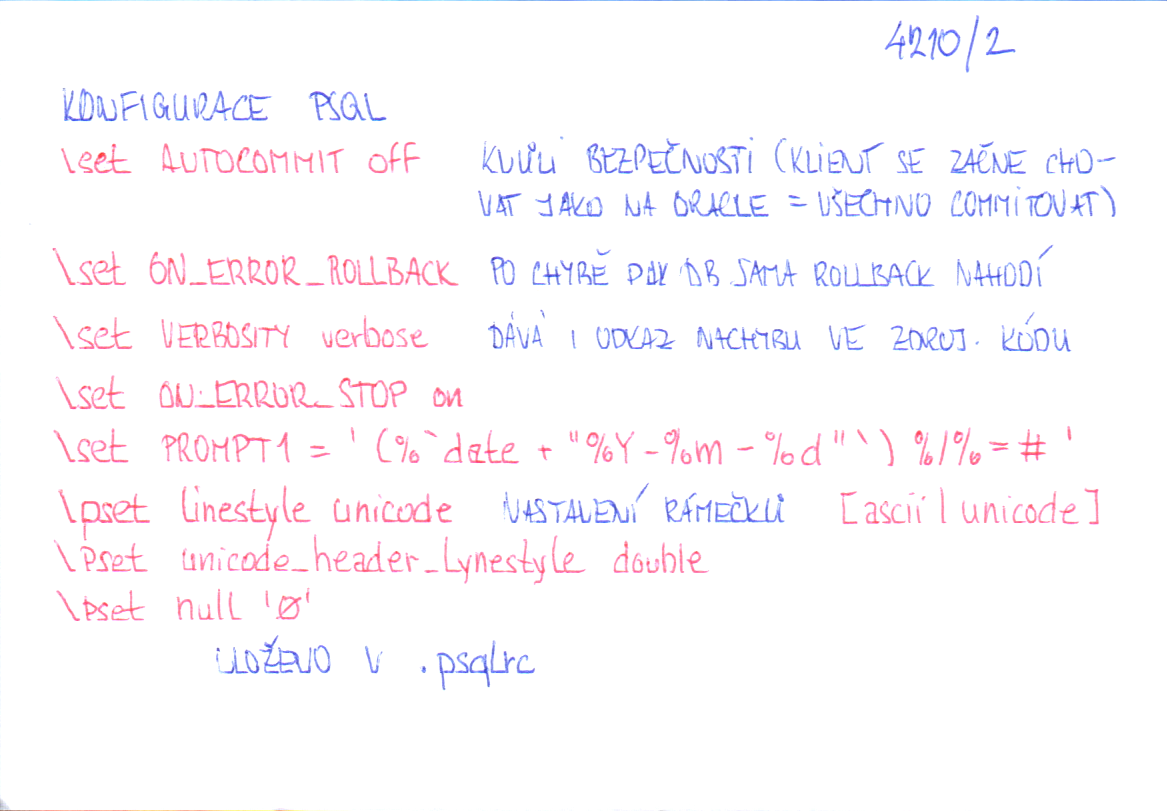 4210/2
KONFIGURACE PSQL
\set AUTOCOMMIT off KVŮLI BEZPEČNOSTI (KLIENT SE ZAČNE CHO-
VAT JAKO NA ORACLE = VŠECHNO COMMITOVAT)
\set ON_ERROR_ROLLBACK PO CHYBĚ PAK DB SAMA ROLLBACK NAHODÍ
\set VERBOSITY verbose DÁVÁ I ODKAZ NA CHYBU VE ZDROJ. KÓDU
\set ON_ERROR_STOP on
\set PROMPT1 = '(%`date + "%Y-%m-%d"`) %/%=# '
\pset linestyle unicode NASTAVENÍ RÁMEČKŮ [ascii | unicode]
\pset unicode_header_lynestyle double
\pset null 'Ø'
ULOŽENO V .psqlrc